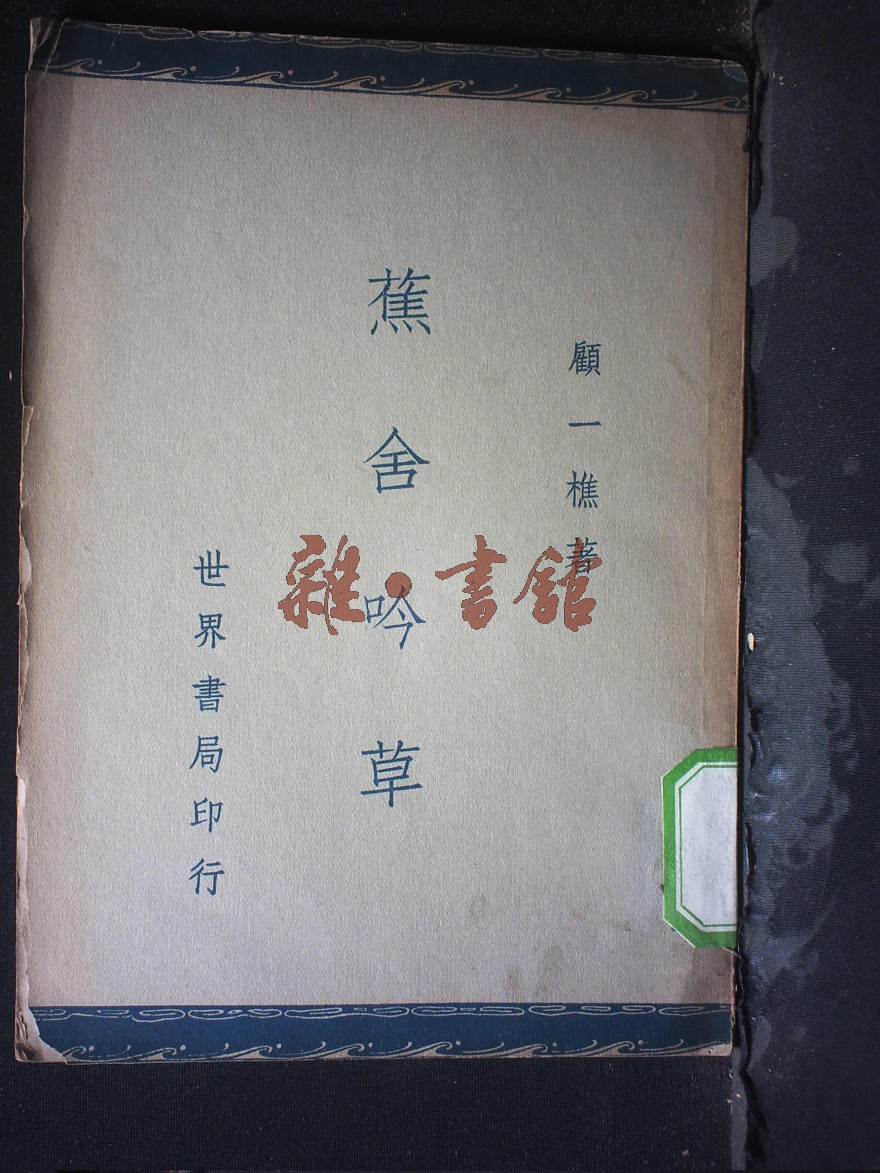 顧一樵著
蕉舍吟草
世界書局印行
雜·書館